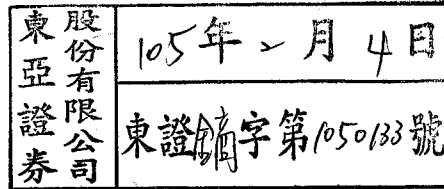 東亞證券
股份有限公司
105年2月4日
東證鏑字第1050133號